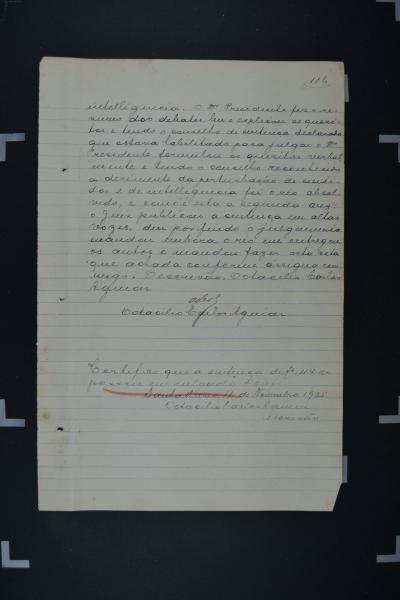 116
intelligencia. O Dr. Presidente fez o re-
sumo dos debates, leu e explicou os quesi-
tos e tendo o conselho de sentença declarado
que estava habilitado para julgar o Dr.
Presidente formulou os quesitos verbal
mente e tendo o conselho reconhecido
a dirimente da perturbação de senti-
dos e de intelligencia foi o réo absol-
vido, e como esta a segunda
o Juiz publicou a sentença em altas
vozes, deu por findo o julgamento
mandou embora o réo me entregou
os autos e mandou fazer esta acta
que
O escrivão, Octacilio Carlos
Aguiar
Octacilio Carlos Aguiar
Certifico que a sentença de fs.
passou em julgado. Dou fé.
11 de Novembro 1925
Octacilio Carlos Aguiar
escrivão